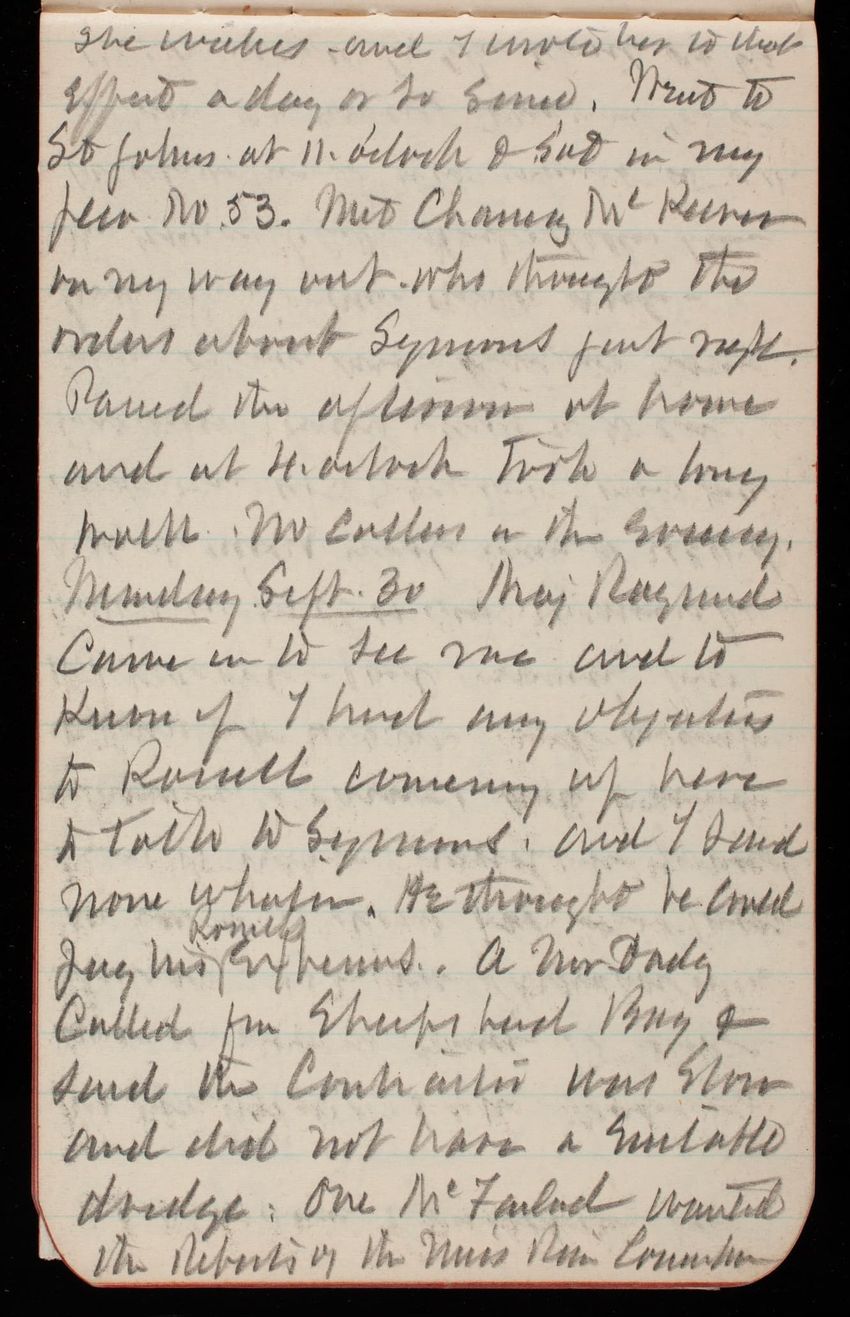 she wishes and I wrote her to that
effect a day or so since. Went to
St Johns at 11. o'clock & sat in my
pew No. 53. Met Chancy McKeever
on my way out. who thought the
orders about Symons just right.
Passed the afternoon at home
and at 4. oclock took a long
walk. No Callers in the evening.
Monday Sept. 30 Maj Raymond
Came in to see me and to
Know if I had any objections
to Rossell coming up here
to talk to Symons. and I said
none whatever. He thought he could
pay his Rossells expenses. A Mr Dady
Called from Sheepshead Bay &
said the Contractor was slow
and did not have a suitable
dredge. One McFarland wanted
the Reports of the Miss River Commission